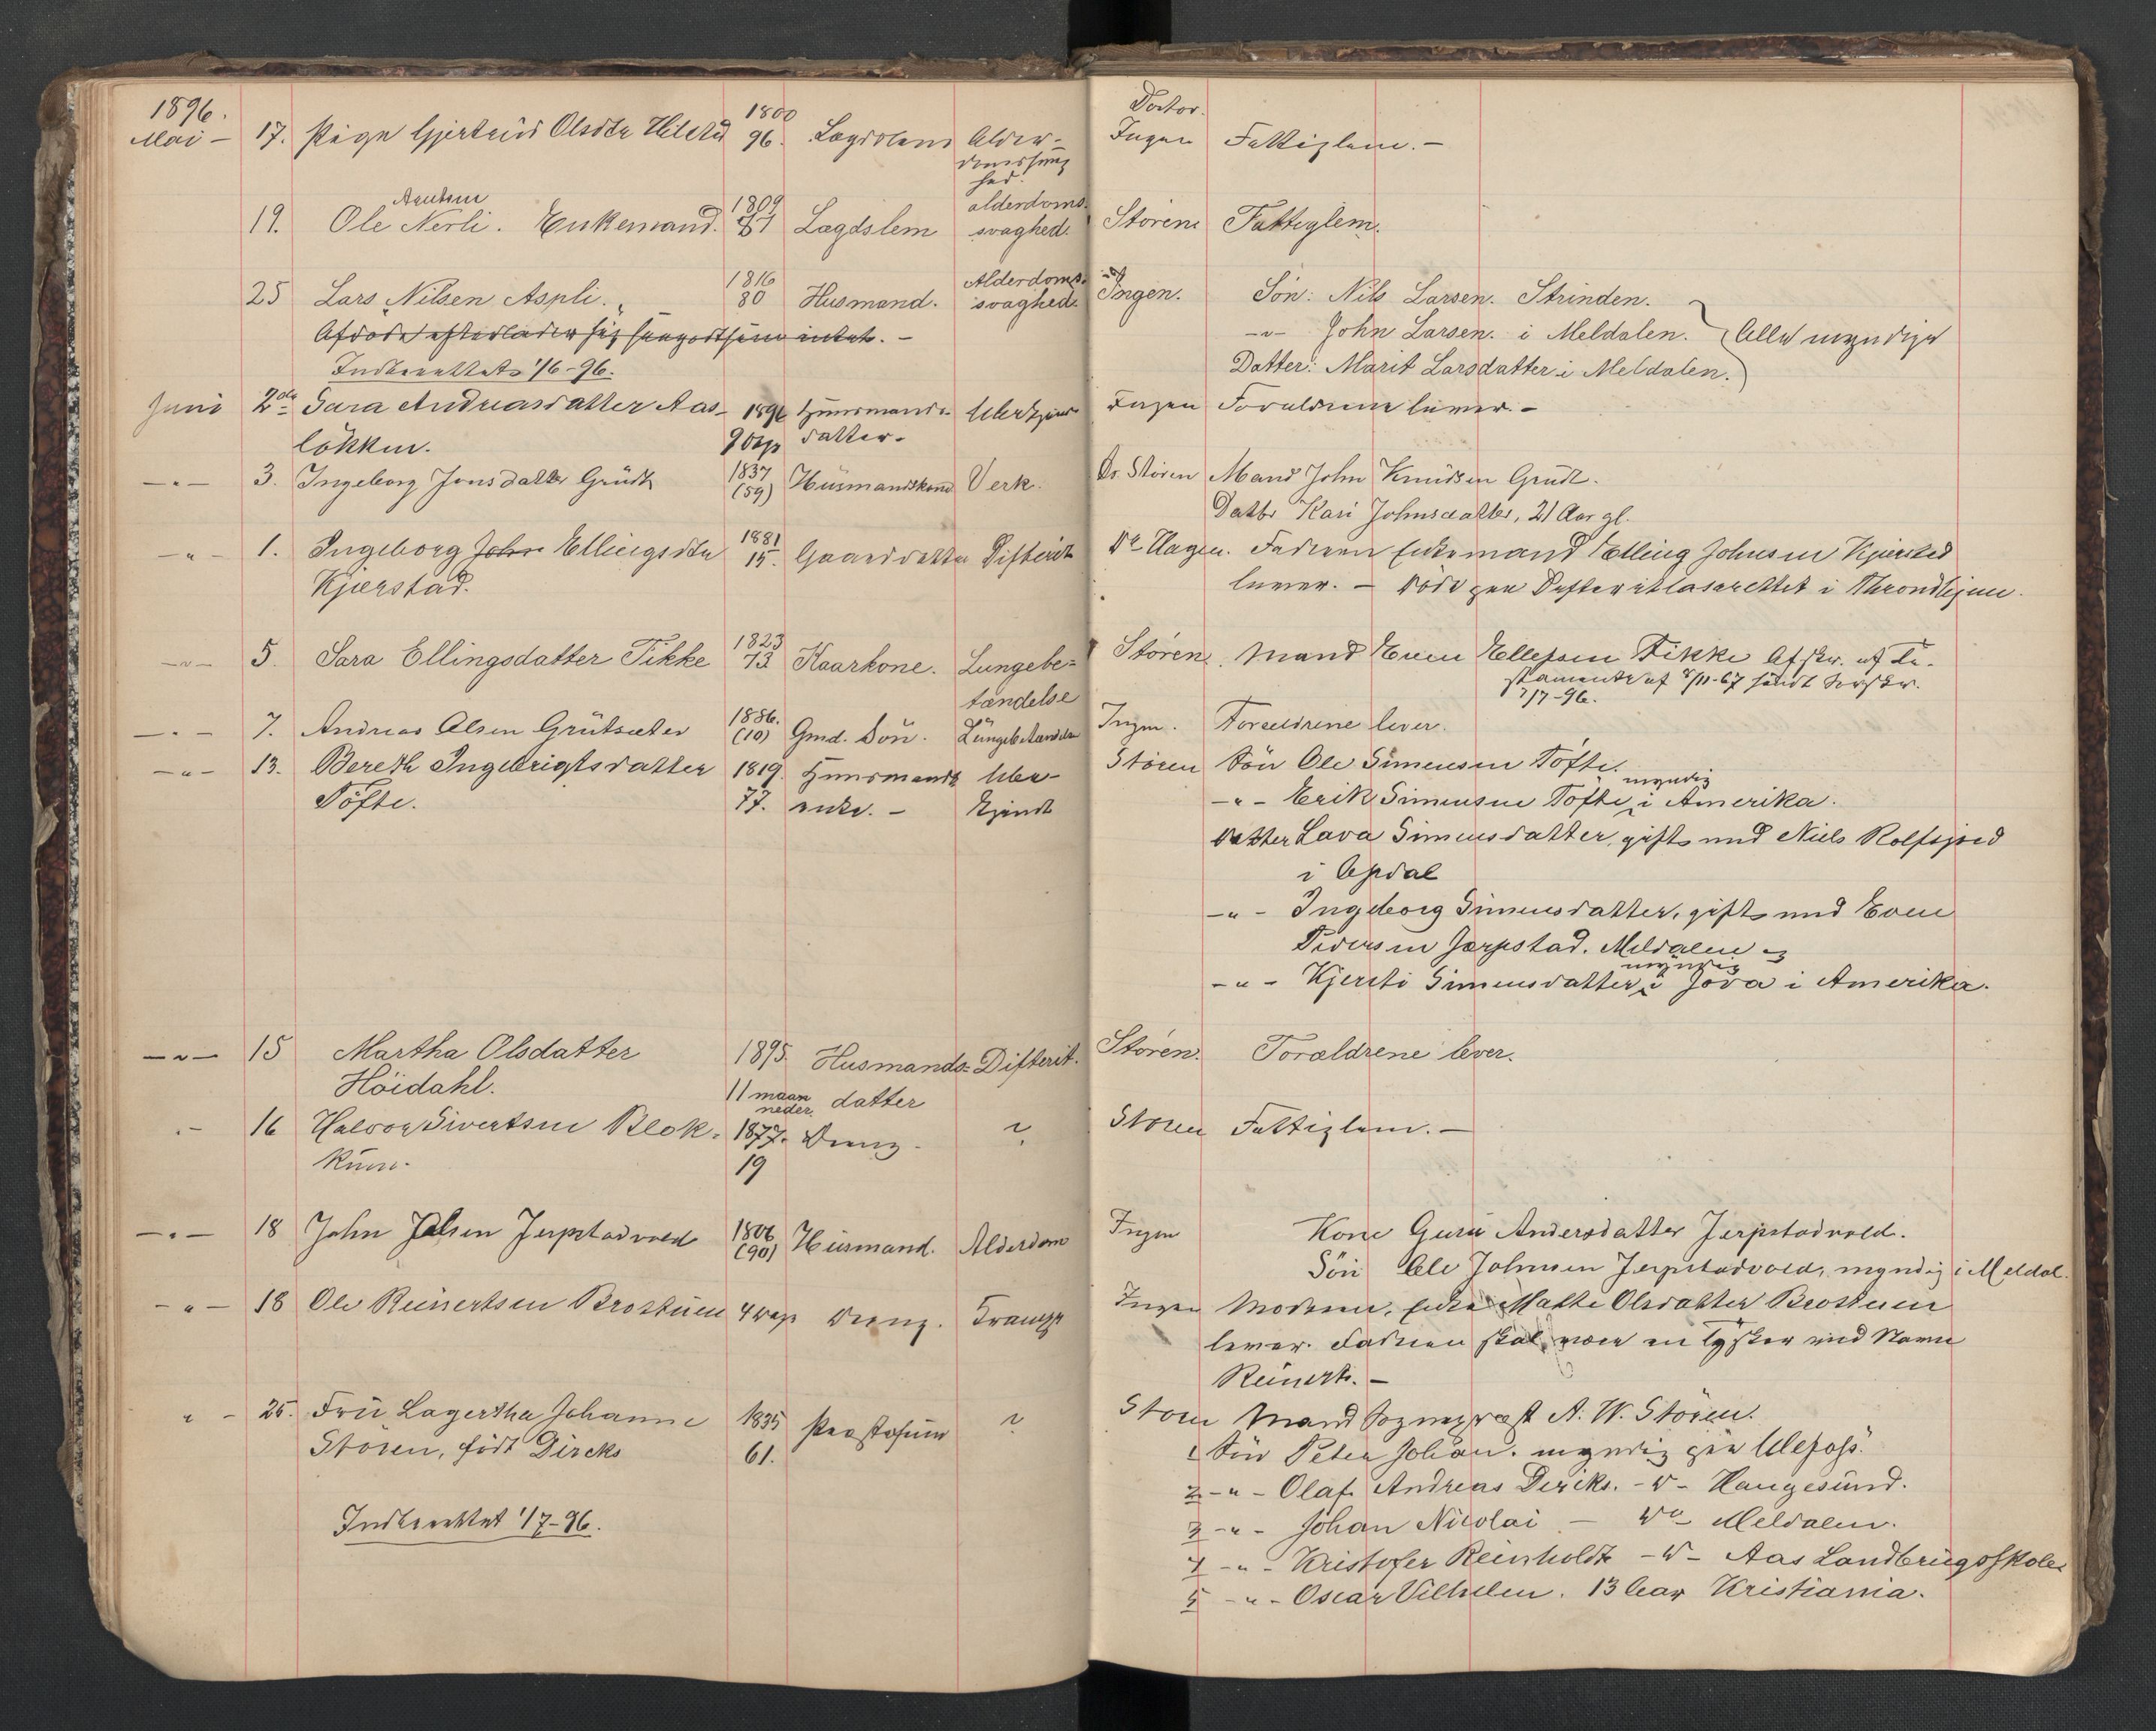 1896.
Mai – 17. Pige Gjertrud Olsdtr 1800 96. Lægdslem Alder-
domssvag
hed.
Doctor.
Ingen Fattiglem. –
19. Ole Arntsen Nerli. Enkemand. 1809 87 Lægdslem alderdoms-
svaghed. Støren Fattiglem.
25 Lars Nilsen Aspli. 1816 80 Husmand. Alderdoms-
svaghed. Ingen. Søn: Nils Larsen. Strinden.
–"– John Larsen. i Meldalen. Alle myndige
Datter: Marit Larsdatter i Meldalen.
Afdøde efterlader sig intet. –
Indberettet 1/6-96.
Juni 2de Sara Andreasdatter Aas-
løkken. 1896 Husmands-
datter. Ingen Forældrene lever. –
–"– 3. Ingeborg Jonsdatter Grüdt 1837 (59) Husmandskone Verk. Dr. Støren Mand John Knudsen Grüdt.
Datter Kari Johnsdatter, 21 Aar gl.
–"– 1. Ingeborg John Ellingsdtr
Kjerstad. 1881 15. Gaardsdatter Difterit Dr Hagen. Faderen Enkemand Elling Johnsen Kjerstad
lever. – Døde paa i Throndhjem.
–"– 5. Sara Ellingsdatter Fikke 1823 73 Kaarkone. Lungebe-
tændelse Støren. Mand Even Ellefsen Fikke Afskr. af Te-
stamente af /11-67 sendt Sorskr.
/7-96.
–"– 7. Andreas Olsen Grütsæter 1886. (10) Gmd. Søn. Lungebetændelse Ingen. Forældrene lever.
–"– 13. Bereth Ingebrigtsdatter
Tøfte. 1819. 77. Husmands
enke. – Ube-
kjendt Støren Søn Ole Simensen Tøfte.
–"– Erik Simensen Tøfte, myndig i Amerika.
Datter Lava Simensdatter, gift med Niels Rolfsjord
i Opdal
–"– Ingeborg Simensdatter, gift med Even
Pedersen Jerpstad. Meldalen og
–"– Kjersti Simensdatter myndig i Jova i Amerika.
–"– 15 Martha Olsdatter
Höidahl. 1895. 11 maaneder. Husmands-
datter Difterit. Støren. Forældrene lever.
– 16 Halvor Sivertsen Blok-
kum. 1877. 19 Dreng. ? Støren Fattiglem. –
–"– 18 John Jerpstadvold 1806 (90) Husmand. Alderdom Ingen Kone Guru Andersdatter Jerpstadvold.
Søn Ole Johnsen Jerpstadvold, myndig i Meldal.
–"– 18 Ole Reinertsen 4 Dage Dreng. Krampe Ingen Moderen, Enke Olsdatter
lever. Faderen skal være en Tysker ved Navn
Reinert. –
" – 25. Frü Lagertha Johanne
Støren, født Dircks 1835 61. Præstefrue ? Støren Mand Sognepræst A. W. Støren.
1 Søn Peter Johan. myndig paa Ulefoss.
2 –"– Olaf Andreas Dircks. –D– Haugesund.
3 –"– Johan Nicolai – Do Meldalen.
4 –"– Kristofer Reinholdt –D– Aas Landbrugsskole
5 –"– Oscar Vilhelm. 13 Aar Kristiania.
Indberettet 1/7-96.